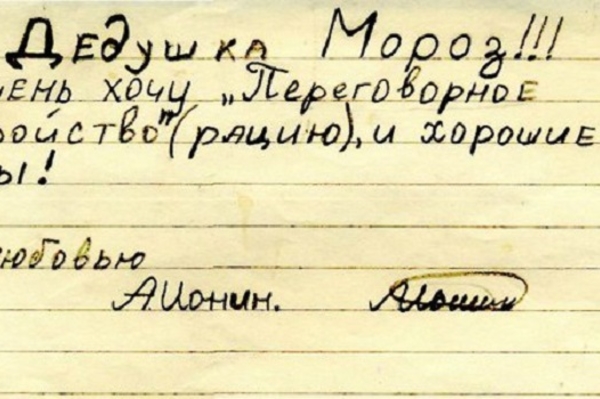 Дедушка Мороз!!!
чень хочу „Переговорное
ройство" (рацию), и хорошие
ры!
любовью
А.Ионин. АИонин